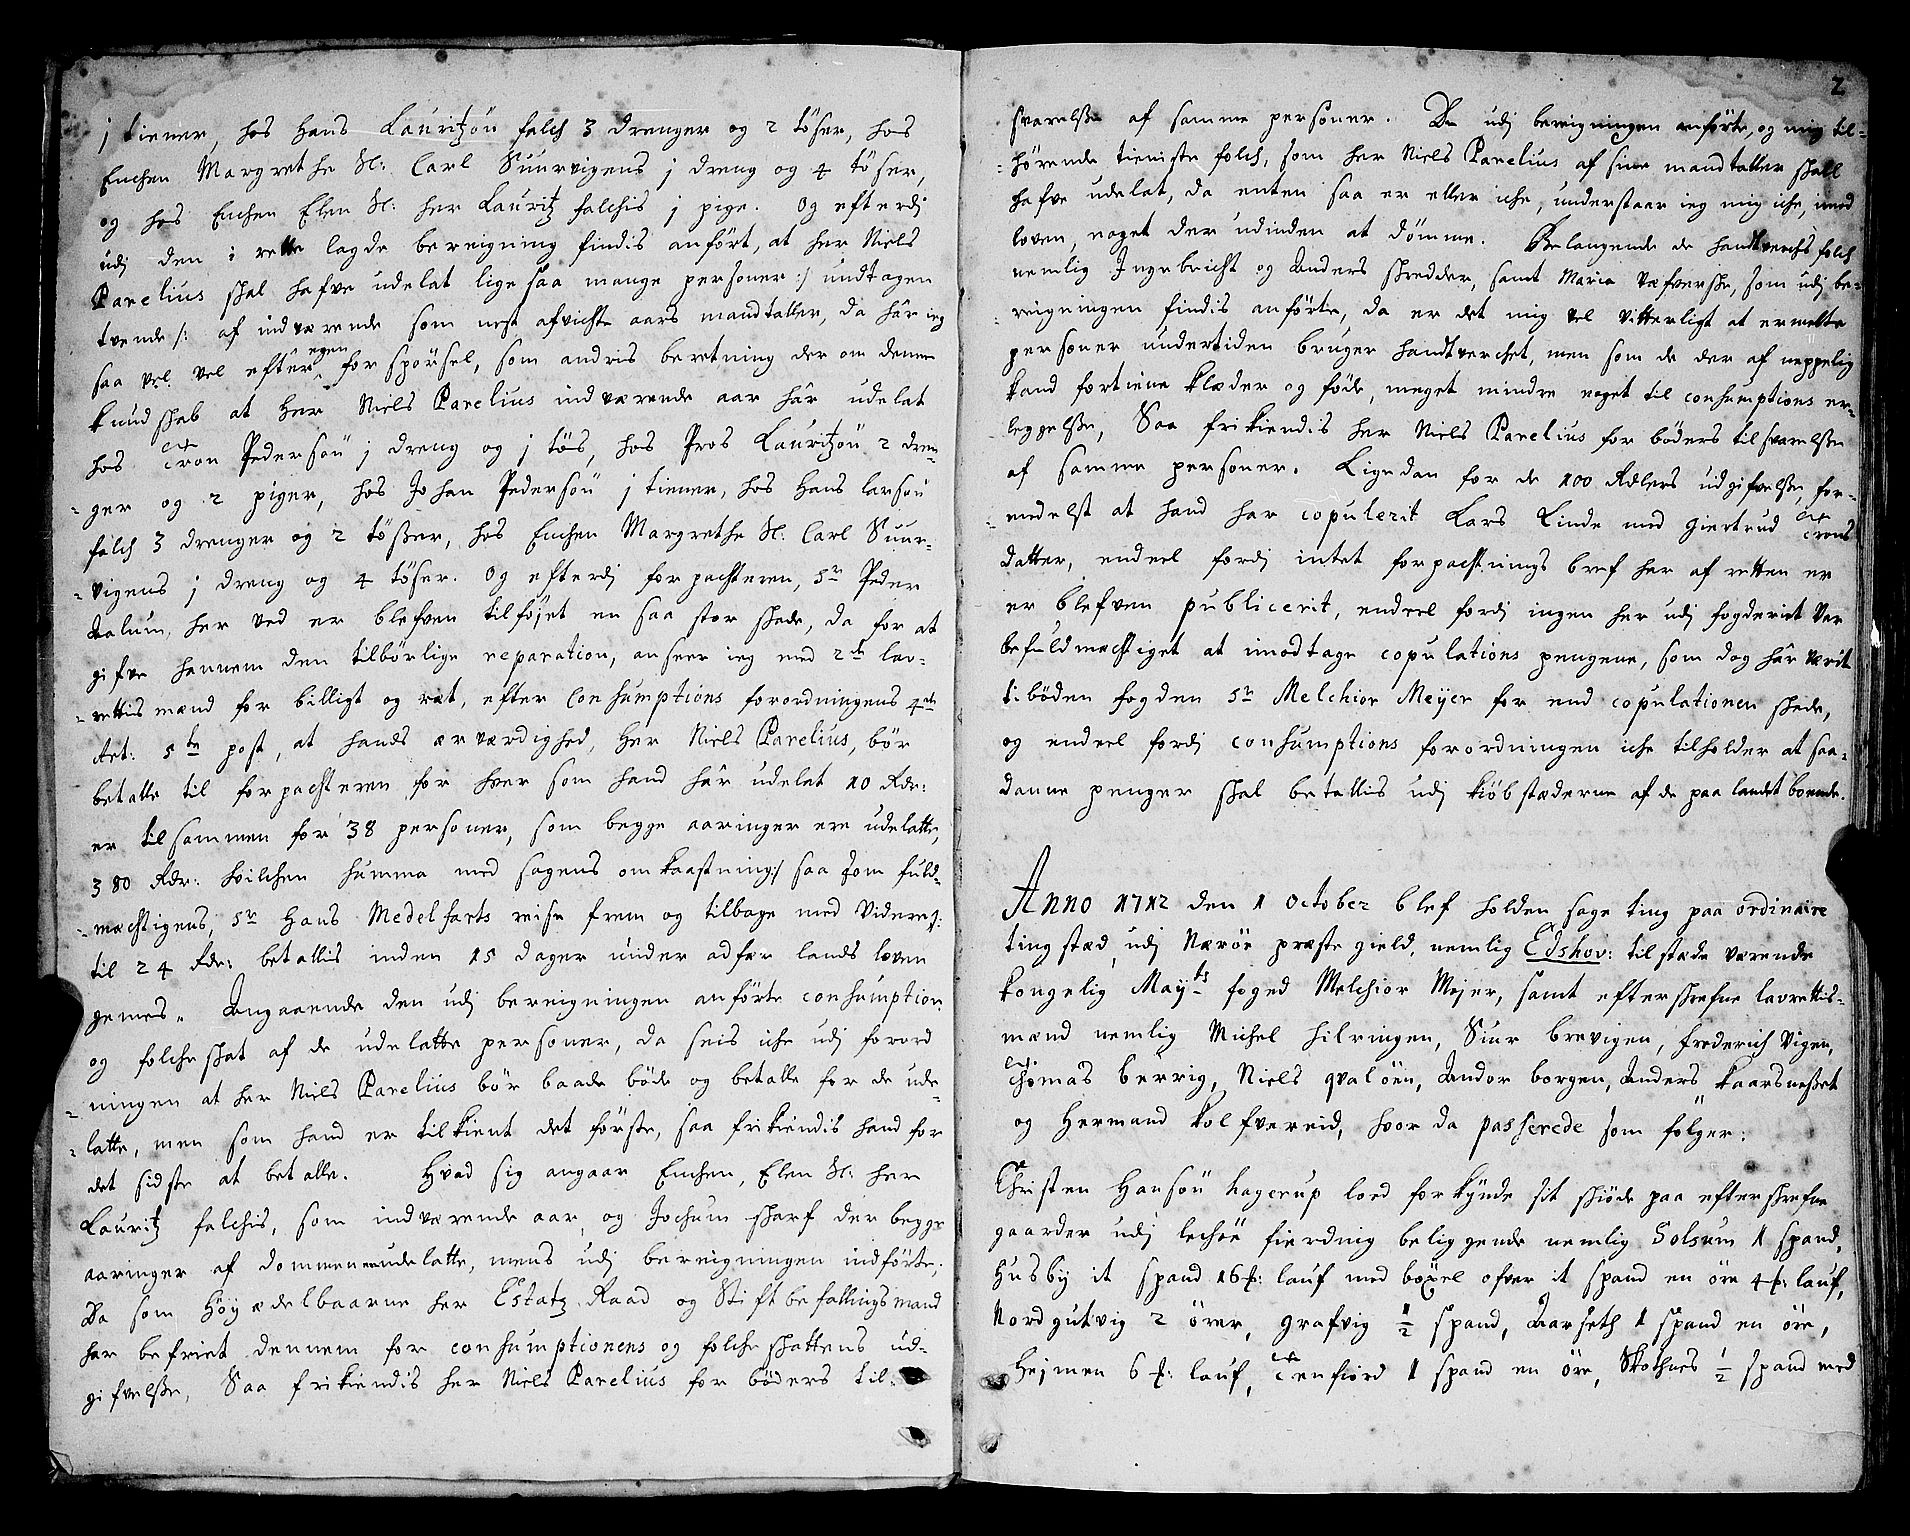 j tiener, hos Hans Lauritzøn falch 3 drenger og 2 tøser, hos
Enchen Margrethe Sl: Carl Suurvigens j dreng og 4 tøser,
og hos Enchen Elen Sl: her Lauritz falchis j pige. Og efterdj
udj den i rette lagde bereigning findis anført, at her Niels
Parelius skal hafve udelat lige saa mange personer :/ undtagen
tvende /: af indværende som nest afvichte aars mandtaller, da hâr ieg
saa vel vel efter egen forspørsel, som andris beretning der om denne
kundskab at Her Niels Parelius indværende aar hâr udelat
hos Tron Pedersøn j dreng og j tøs, hos Pros Lauritzøn 2 dren-
-ger og 2 piger, hos Johan Pedersøn j tiener, hos Hans larsøn
falch 3 drenger og 2 tøßer, hos Enchen Margrethe Sl: Carl Suur-
-vigens j dreng og 4 tøser. Og efterdj forpachteren, Sr Peder
Dalum, her ved er blefven tilføjet en saa stor skade, da for at
gifve hannem den tilbørlige reparation, anseer ieg med 2de lav-
-rettis mænd for billigt og ræt, efter Consumptions forordningens 4de
Art: 5te post, at hands ærværdighed, Her Niels Parelius, bør
betalle til forpachteren for hver som hand hâr udelat 10 Rdr:
er tilsammen for 38 personer, som begge aaringer ere udelatte,
380 Rdr: hvilchen summa med sagens omkaastning :/ saa som fuld-
-mæchtigens, Sr Hans Medelfarts reise frem og tilbage med videre /:
til 24 Rdr: betallis inden 15 dager under adfær lands loven
gemes. Angaaende den udj bereigningen anførte consumption
og folcheskat af de udelatte personer, da seis iche udj forord
-ningen at her Niels Parelius bør baade bøde og betalle for de ude-
-latte, men som hand er tilkient det første, saa frikiendis hand for
det sidste at betalle. Hvad sig angaar Enchen, Elen Sl: her
Lauritz falchis, som indværende aar, og Jochum skarf der begge
aaringer af dommen ere udelatte, mens udj bereigningen indførte;
Da som Høyædelbaarne her Estatz Raad og Stiftbefallingsmand
har befriet dennem for consumptionens og folcheskattens ud-
gifvelße, Saa frikiendis her Niels Parelius for bøders til-
2
svarelße af samme personer. De udj bereigningen anførte, og mig til-
-hørende tieniste folch, som her Niels Parelius af sine mandtaller skall
hafve udelat, da enten saa er eller iche, understaar ieg mig iche, imod
loven, noget der udinden at dømme. Belangende de handtverchs folch
nemlig Ingebricht og Anders skredder, samt Maria væfverske, som udj be-
reigningen findis anførte, da er det mig vel vitterligt at ermelte
personer undertiden bruger handtverchet, men som de der af neppelig
kand fortiene klæder og føde, meget mindre noget til consumptions er-
leggelße, Saa frikiendis her Niels Parelius for bøders tilsvarelße
af samme personer. Ligedan for de 100 Rdlers udgifvelße, for-
-medelst at hand har copulerit Lars Linde med giertrud Trons
datter, endeel fordj intet forpachtnings bref her af retten er
er blefven publicerit, endeel fordj ingen her udj fogderiet var
befuldmæchtiget at imodtage copulations pengene, som dog hâr værit
tilbøden fogden Sr Melchior Meyer for end copulationen skede,
og endeel fordj consumptions forordningen iche tilholder at saa-
danne penger skal betallis udj kiøbstæderne af de paa landet boende.
Anno 1712 den 1 October blef holden sage ting paa ordinaire
tingstæd udj Nærøe præstegield, nemlig Edshov: tilstæde værende
kongelig Mayts foged Melchior Mejer, samt efterskrefne lavrettis-
mænd nemlig Michel hilringen, Siur brevigen, frederich vigen,
Thomas berrig, Niels qvaløen, Andor borgen, Anders kaarsneßet
og Hermand kolfvereid, hvor da passerede som følger:
Christen Hansøn hagerup loed forkynde sit skiøde paa efterskrefne
gaarder udj lechøe fierding beliggende nemlig Solsem 1 spand,
Husby it spand 16 #: lauf med bøxel ofver it spand en øre 4 #: lauf,
Nordgutvig 2 ører, grafvig ½ spand, Aarseth 1 spand en øre,
Hejmen 6 #: lauf, Terfiord 1 spand en øre, Skotnes ½ spand med